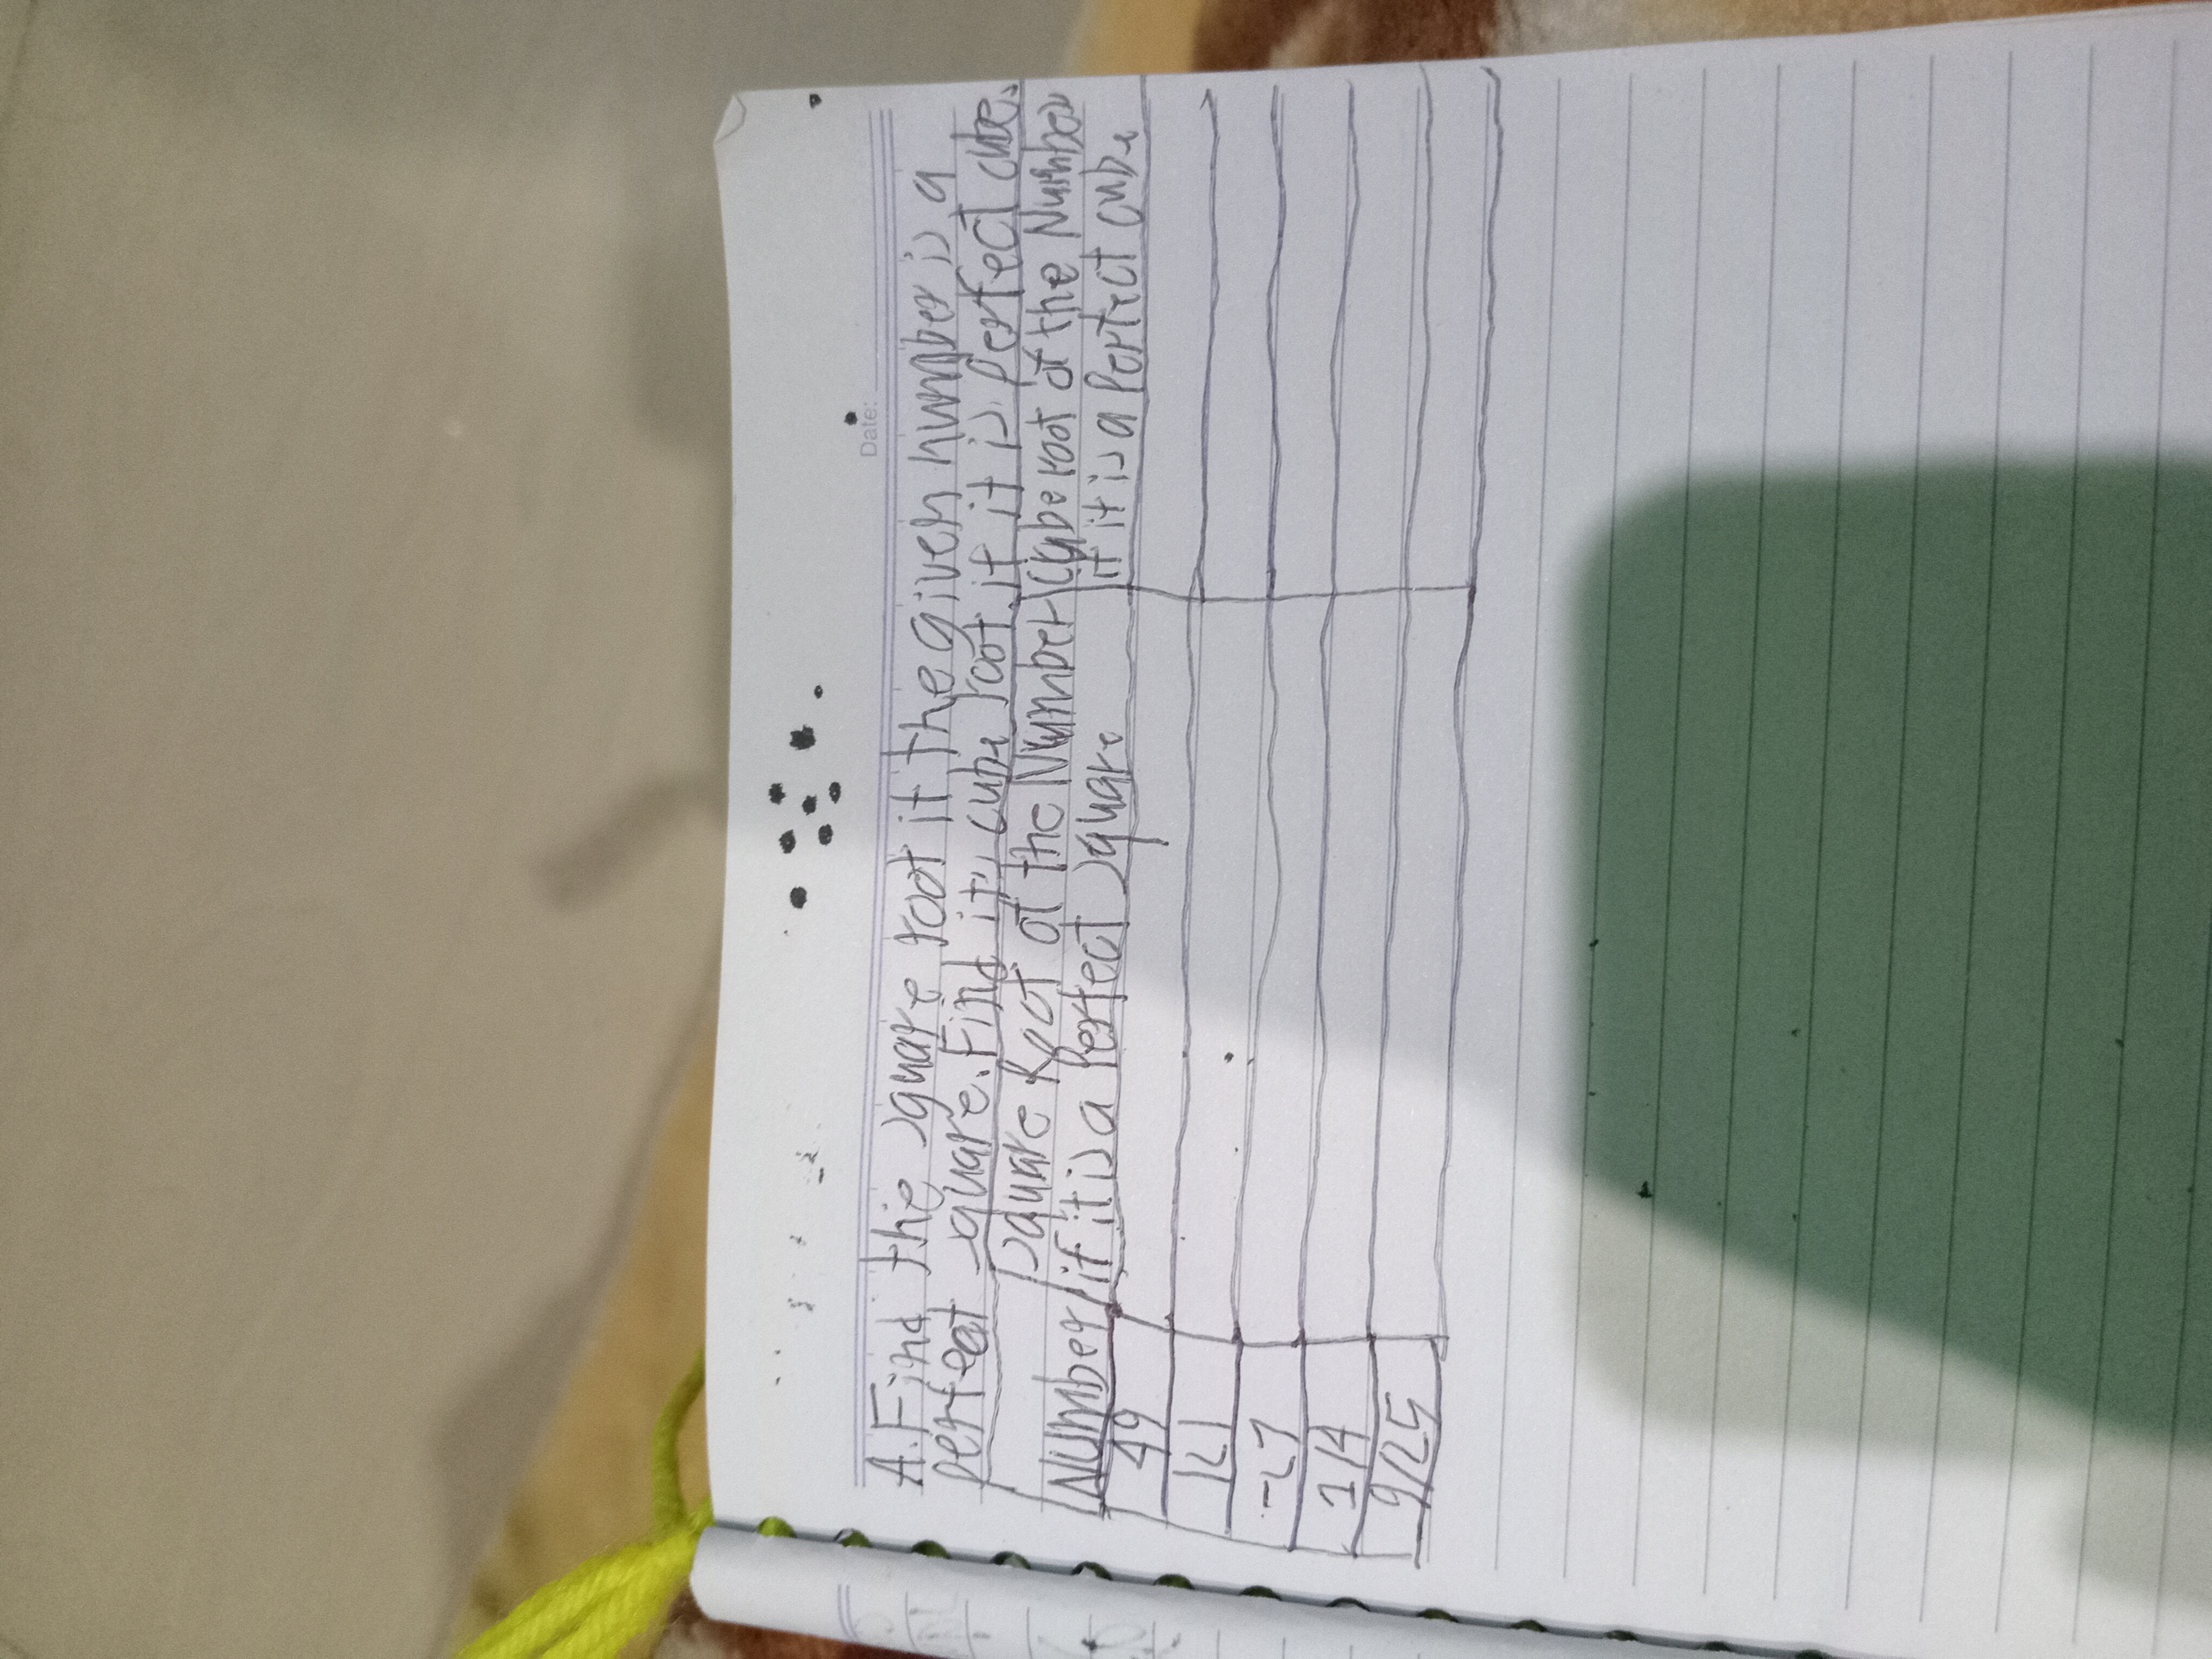 Date:
A. Find the square root if the given number is a
perfect square. Find its cube root if it is perfect cube.
Number
Square Root of the Number
if it is a Perfect Square
Cube root of the Number
if it is a Perfect cube
49
121
-27
1/4
9/25